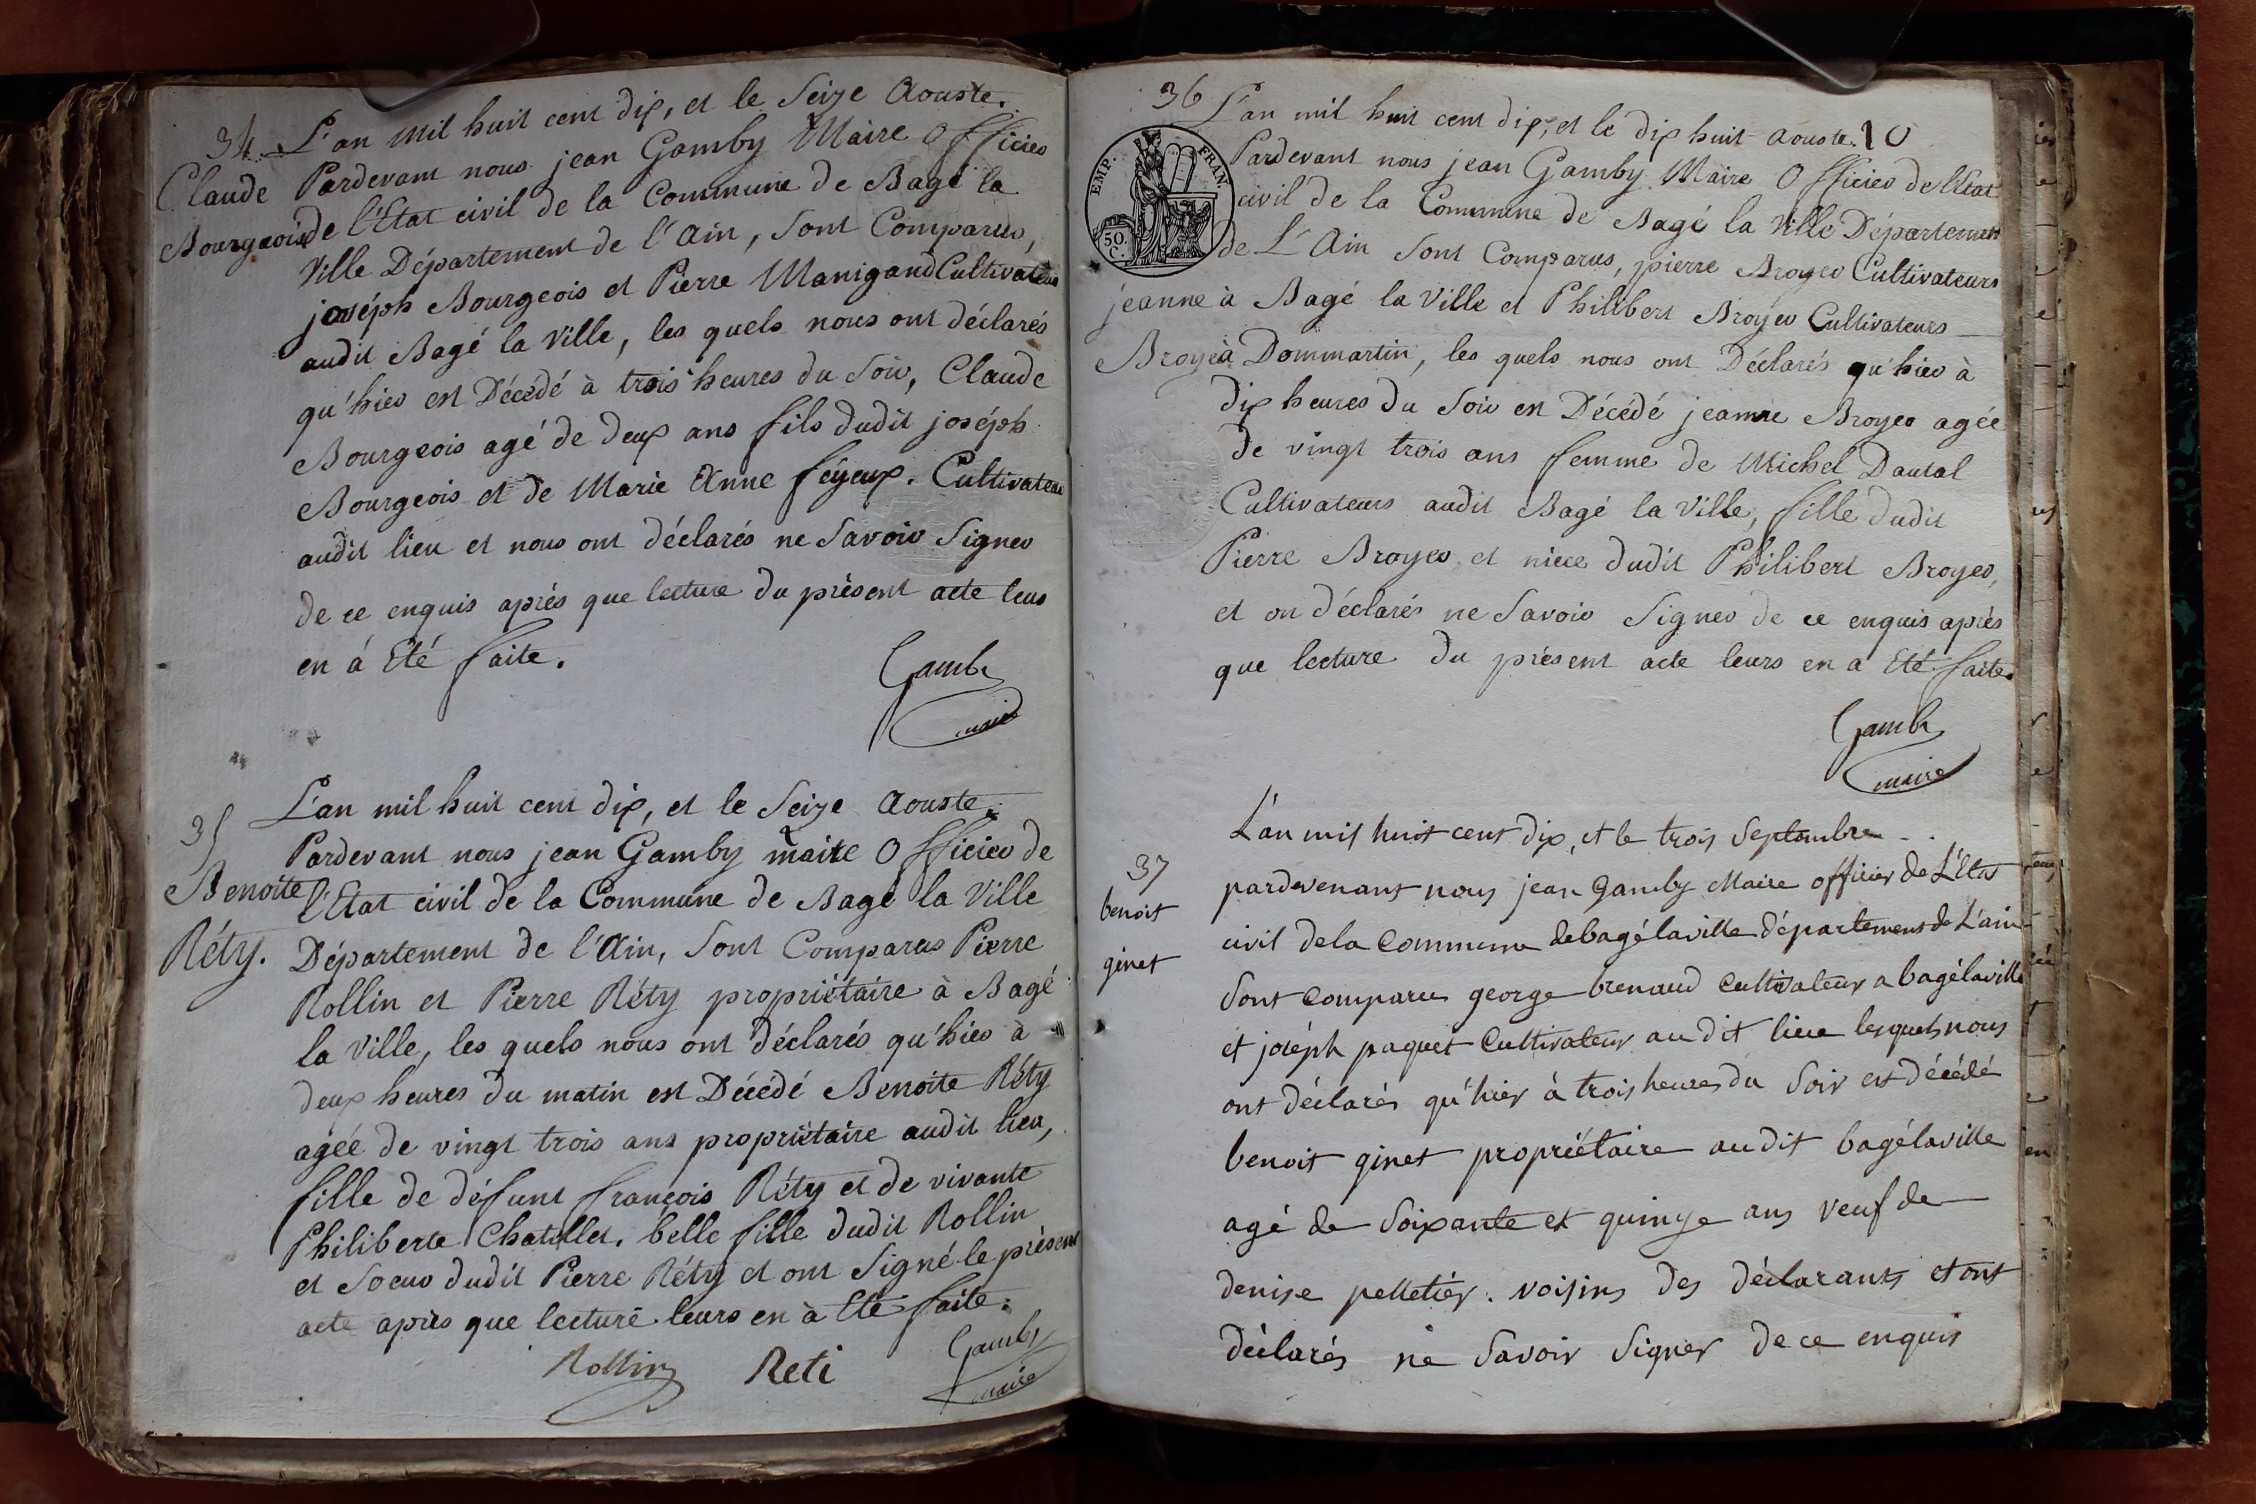 34 L'an Mil huit cent dix, et le Seize Aouste.
Claude Pardevant nous jean Gamby Maire Officier
Bourgeois de l'Etat civil de la Commune de Bagé la
Ville Département de l'Ain, sont Comparus,
joséph Bourgeois et Pierre Manigand Cultivateurs
audit Bagé la Ville, les quels nous ont déclarés
qu'hier est Décédé à trois heures du Soir, Claude
Bourgeois agé de deux ans fils dudit joséph
Bourgeois et de Marie Anne feyeux. Cultivateurs
audit lieu et nous ont déclarés ne Savoir Signer
de ce enquis aprés que lecture du présent acte leurs
en à Eté faite.
Gamby
maire
35 L'an mil huit cent dix, et le Seize Aouste.
Pardevant nous jean Gamby maire Officier de
Benoite l'Etat civil de la Commune de Bagé la Ville
Réty. Département de l'Ain, Sont Comparus Pierre
Rollin et Pierre Réty propriétaire à Bagé
la Ville, les quels nous ont déclarés qu'hier à
deux heures du matin est Décédé Benoite Réty
agée de vingt trois ans propriétaire audit lieu,
fille de défunt françois Réty et de vivante
Philiberte Chatillet. belle fille dudit Rollin
et Soeur dudit Pierre Réty et ont Signé le présent
acte aprés que lecture leurs en à Eté faite.
Rollin Reti Gamby
maire
36 L'an mil huit cent dix, et le dix huit Aouste. 10
EMP. FRAN.
50. C.
Pardevant nous jean Gamby Maire Officier de l'Etat
civil de la Commune de Bagé la Ville Département
de L'Ain Sont Comparus, pierre Broyer Cultivateurs
jeanne à Bagé la Ville et Philibert Broyer Cultivateurs
Broyer à Dommartin, les quels nous ont Déclarés qu'hier à
dix heures du Soir est Décédé jeanne Broyer agée
de vingt trois ans femme de Michel Dautal
Cultivateurs audit Bagé la Ville, fille dudit
Pierre Broyer, et niece dudit Philibert Broyer,
et on déclarés ne Savoir Signer de ce enquis aprés
que lecture du présent acte leurs en a Eté faite.
Gamby
maire
L'an mil huit cent dix, et le trois Septembre
37 pardevenant nous jean gamby Maire officier de L'Etat
benoit civil de la Commune de bagé la ville département de L'ain
ginet Sont Comparu george brenaud Cultivateur a bagé la ville
et joséph paquet Cultivateur au dit lieu lesquels nous
ont déclarés qu'hier à trois heures du Soir est décédé
benoit ginet propriétaire au dit bagé la ville
agé de Soixante et quinze ans veuf de
denise pelletiér. voisins des déclarants et ont
déclarés ne Savoir Signer de ce enquis